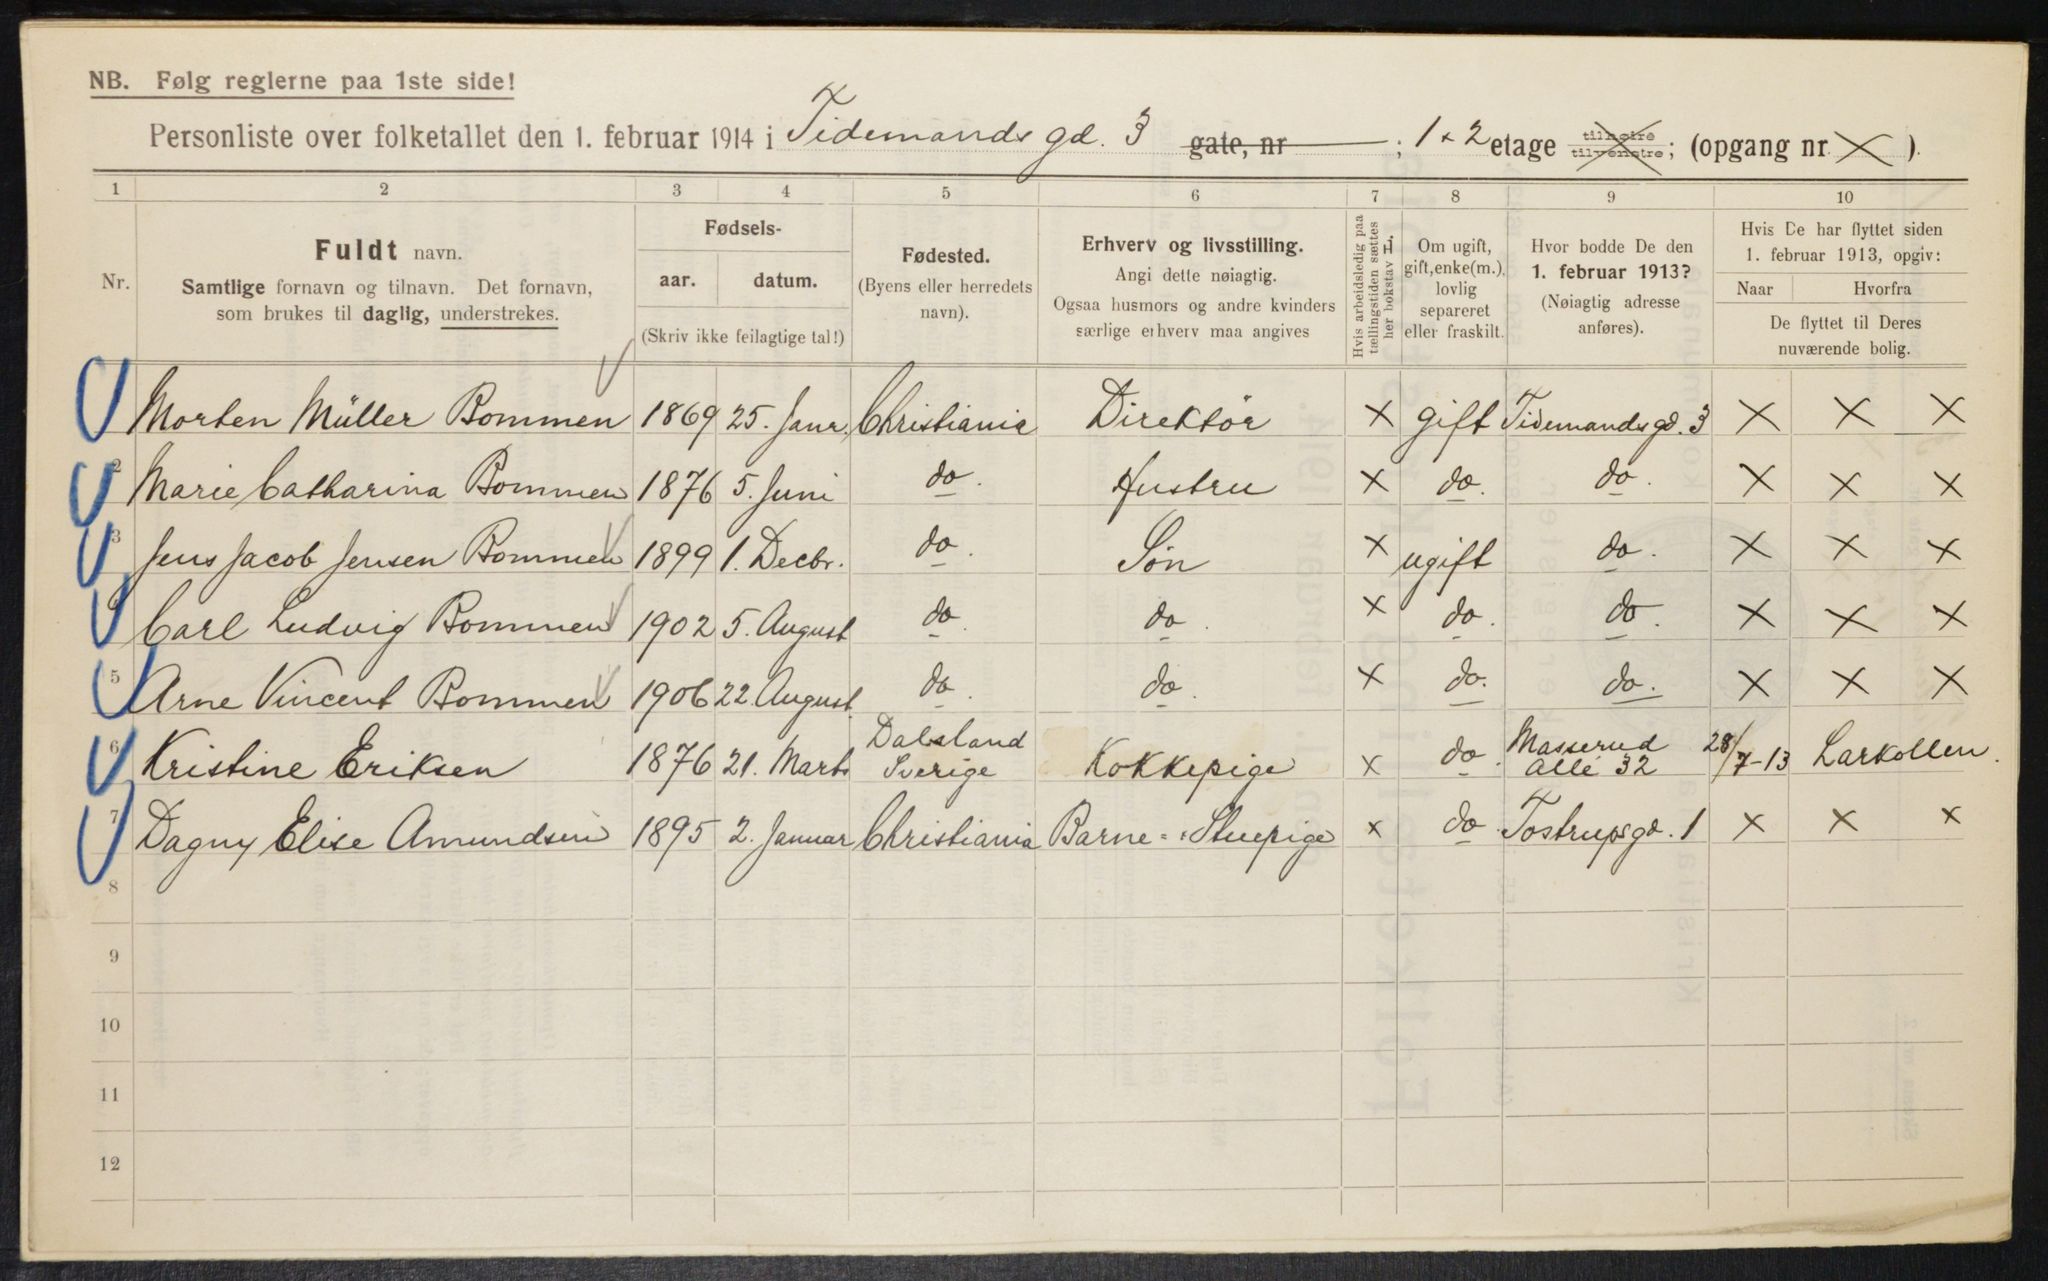 NB. Følg reglerne paa 1ste side!
Personliste over folketallet den 1. februar 1914 i Tidemands gd. 3 gate, nr ; 1 + 2 etage tilhøire tilvenstre; (opgang nr X ).
1 2 3 4 5 6 7 8 9 10
Nr.
Fuldt navn.
Samtlige fornavn og tilnavn. Det fornavn,
som brukes til daglig, understrekes.
Fødsels-
aar. datum.
(Skriv ikke feilagtige tal!)
Fødested.
(Byens eller herredets
navn).
Erhverv og livsstilling.
Angi dette nøiagtig.
Ogsaa husmors og andre kvinders
særlige erhverv maa angives
Hvis arbeidsledig paa
tællingstiden sættes
her bokstav L.
Om ugift,
gift, enke(m.),
lovlig
separeret
eller fraskilt.
Hvor bodde De den
1. februar 1913?
(Nøiagtig adresse
anføres).
Hvis De har flyttet siden
1. februar 1913, opgiv:
Naar Hvorfra
De flyttet til Deres
nuværende bolig.
Morten Müller Bommen 1869 25. Janr. Christiania Direktör X gift Tidemandsgd. 3 X X X
2 Marie Catharina Bommen 1876 5. Juni do. Hustru X do. do. X X X
3 Jens Jacob Jensen Bommen 1899 1. Decbr. do. Sön X ugift do. X X X
Carl Ludvig Bommen 1902 5. August do. do. X do. do. X X X
5 Arne Vincent Bommen 1906 22. August do. do. X do. do. X X X
6 Kristine Eriksen 1876 21. Marts Dalsland Sverige Kokkepige X do. Masserud Allé 32 28/7-13 Larkollen.
7 Dagny Elise Amundsen 1895 2. Januar Christiania Barne- Stuepige X do. Tostrupsgd. 1 X X X
8
9
10
11
12